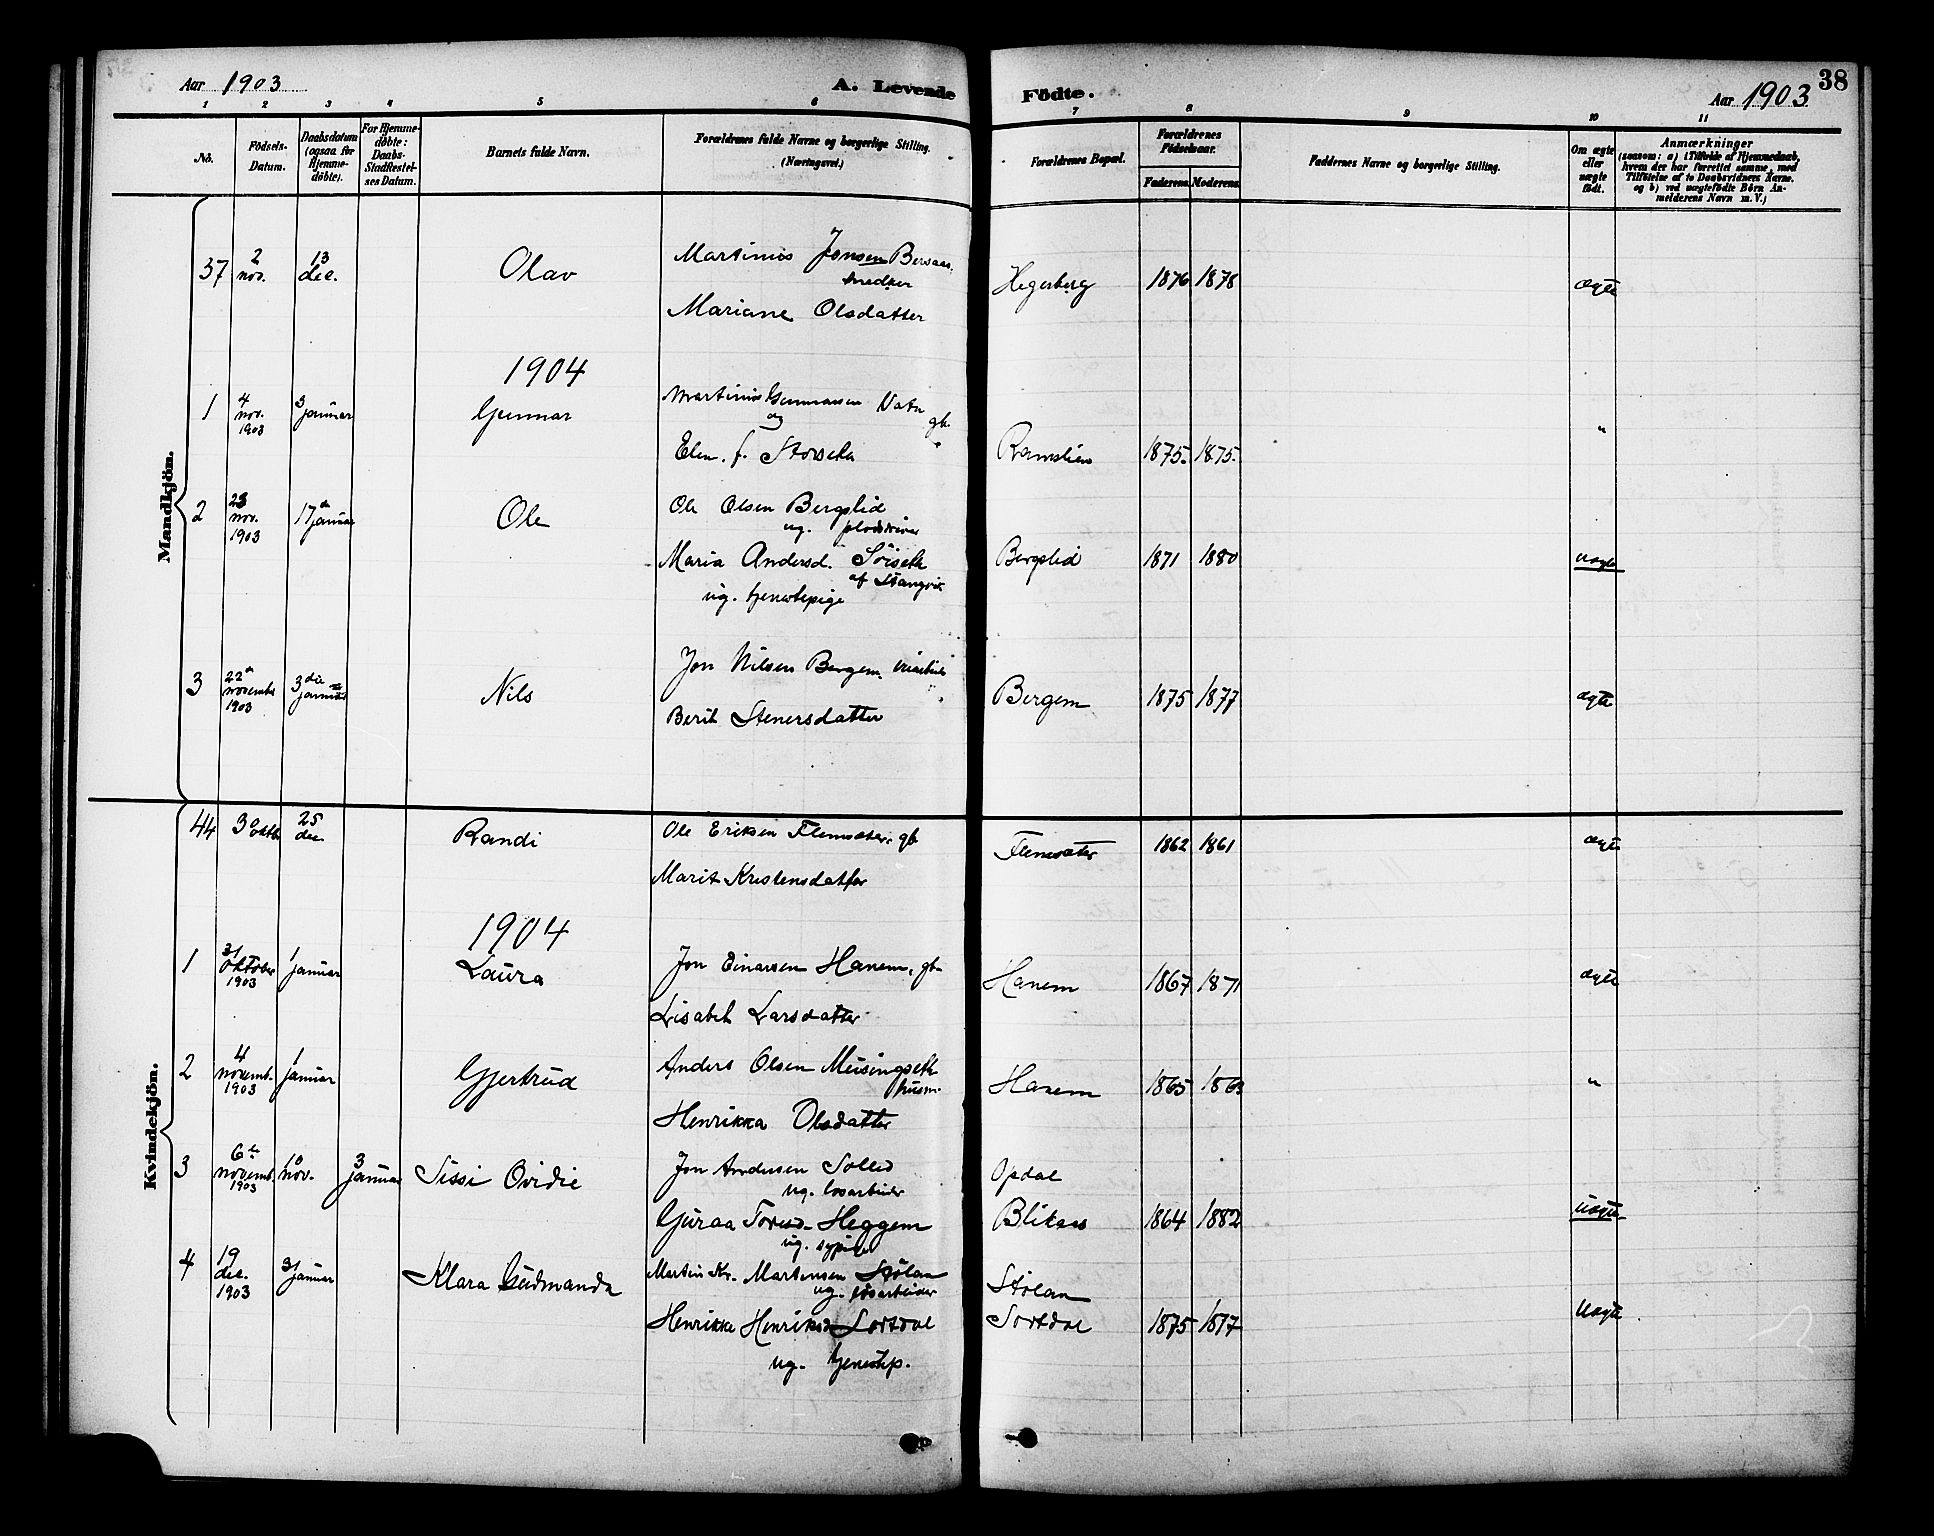 Aar 1903
A. Levende
Födte.
Aar 1903
38
1 2 3 4 5 6 7 8 9 10 11
No.
Födsels-Datum.
Daabsdatum (ogsaa for Hjemme-döbte).
For Hjemme-döbte: Daabs-Stadfestel-ses Datum.
Barnets fulde Navn.
Forældrenes fulde Navne og borgerlige Stilling. (Næringsvei.)
Forældrenes Bopæl.
Forældrenes Födselsaar.
Faderens. Moderens.
Faddernes Navne og borgerlige Stilling.
Om ægte eller uægte födt.
Anmærkninger
(saasom: a) i Tilfælde af Hjemmedaab,
hvem der har forrettet samme, med
Tilföielse af to Daabsvidners Navne.
og b) ved uægtefödte Börn An-
melderens Navn m. V.)
Mandkjön.
37 2 nov. 13 dec. Olav Martinus Jonsen
snedker
Mariane Olsdatter
Hegerberg 1876 1878 ægte
1904
1 4 nov. 1903 3 januar Gunnar Martinus Gunnarsen Vatn gb.
og
Elen f. Storseth
1875. 1875. "
2 23 nov. 1903 17 januar Ole Ole Olsen Bergslid
ug.
Maria Andersd.
af Stangvik
ug. tjenestepige
Bergslid 1871 1880 uægte
3 22 novembr 1903 3die januar Nils Jon Nilsen Bergem
Berit Stenersdatter
Bergem 1875 1877 ægte
Kvindekjön.
44 3 oktb 25 dec. Randi Ole Eriksen Flemsæter, gb
Marit Kristensdatter
Flemsæter 1862 1861 ægte
1904
1 31 oktober 1903 1 januar Laura Jon Einarsen Hanem, gb
Lisabet Larsdatter
Hanem 1867 1871 ægte
2 4 novemb. 1903 1 januar Gjertrud Anders Olsen Meisingseth
husm.
Henrikka Olsdatter
Hanem 1865 1863 "
3 6te novemb. 1903 10 nov. 3 januar Sissi Ovidie Jon Andersen Solled
ug. løsarbeider
Guraa Toresd. Heggem
ug. sypige
Opdal
Blikaas 1864 1882 uægte
4 19 dec. 1903 3 januar Klara Gudmanda Martin Kr. Martensen Stølan
ug. løsarbeider
Henrikke Henriksd. Sortdal
ug. tjenestep.
Stølan
Sortdal 1875 1877 uægte